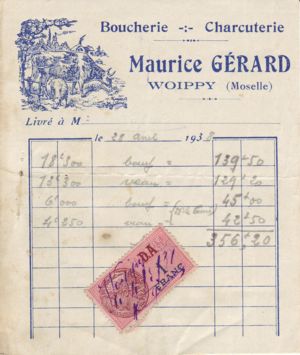 Boucherie -:- Charcuterie
Maurice GÉRARD
WOIPPY (Moselle)
Livré à M
le 28 avril 1938
18k300 bœuf = 139 50
13k300 veau = 129 20
6k000 bœuf = 45 00
4k250 veau = 42 50
356 20
D.A
1
FRANC